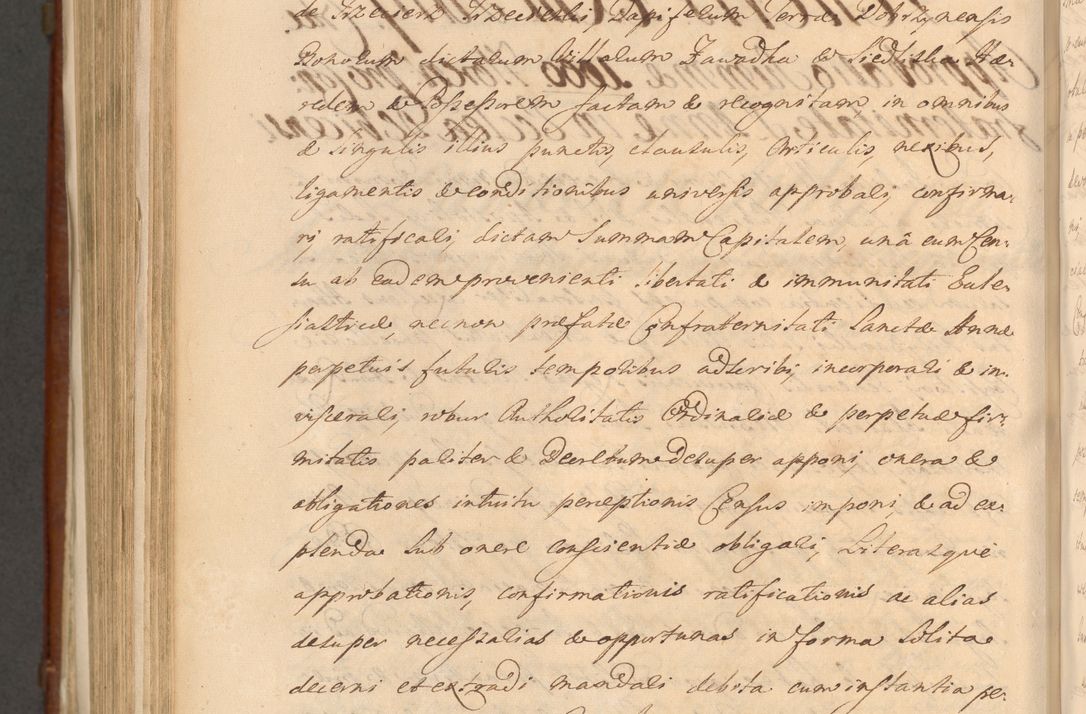 de Trzeciesz Trzeciecki, Dapiferum Terrae Dobrzynensis
Bonorum dictarum Villarum Zawadka & Siedliska Hæ-
redem & Possessorem factam & recognitam, in omnibus
& singulis illius punctis, clausulis, Articulis, nexibus,
ligamentis & conditionibus universis approbari, confirma-
ri, ratificari, dictam Summam Capitalem, unâ cum Cen-
su ab eadem provenienti libertati & immunitati Eccle-
siasticæ, necnon præfatæ Confraternitati Sanctæ Annæ
perpetuis futuris temporibus adscribi, incorporari & in-
viscerari, robur Authoritatis Ordinariæ & perpetuæ fir-
mitatis pariter & Decretum desuper apponi, onera &
obligationes intuitu perceptionis Census imponi & ad ex-
plenda sub onere conscientiæ obligari, Literasque
approbationis, confirmationis ratificationis ac alias
desuper necessarias & opportunas in forma solita
decerni et extradi mandari debita cum instantia pe-